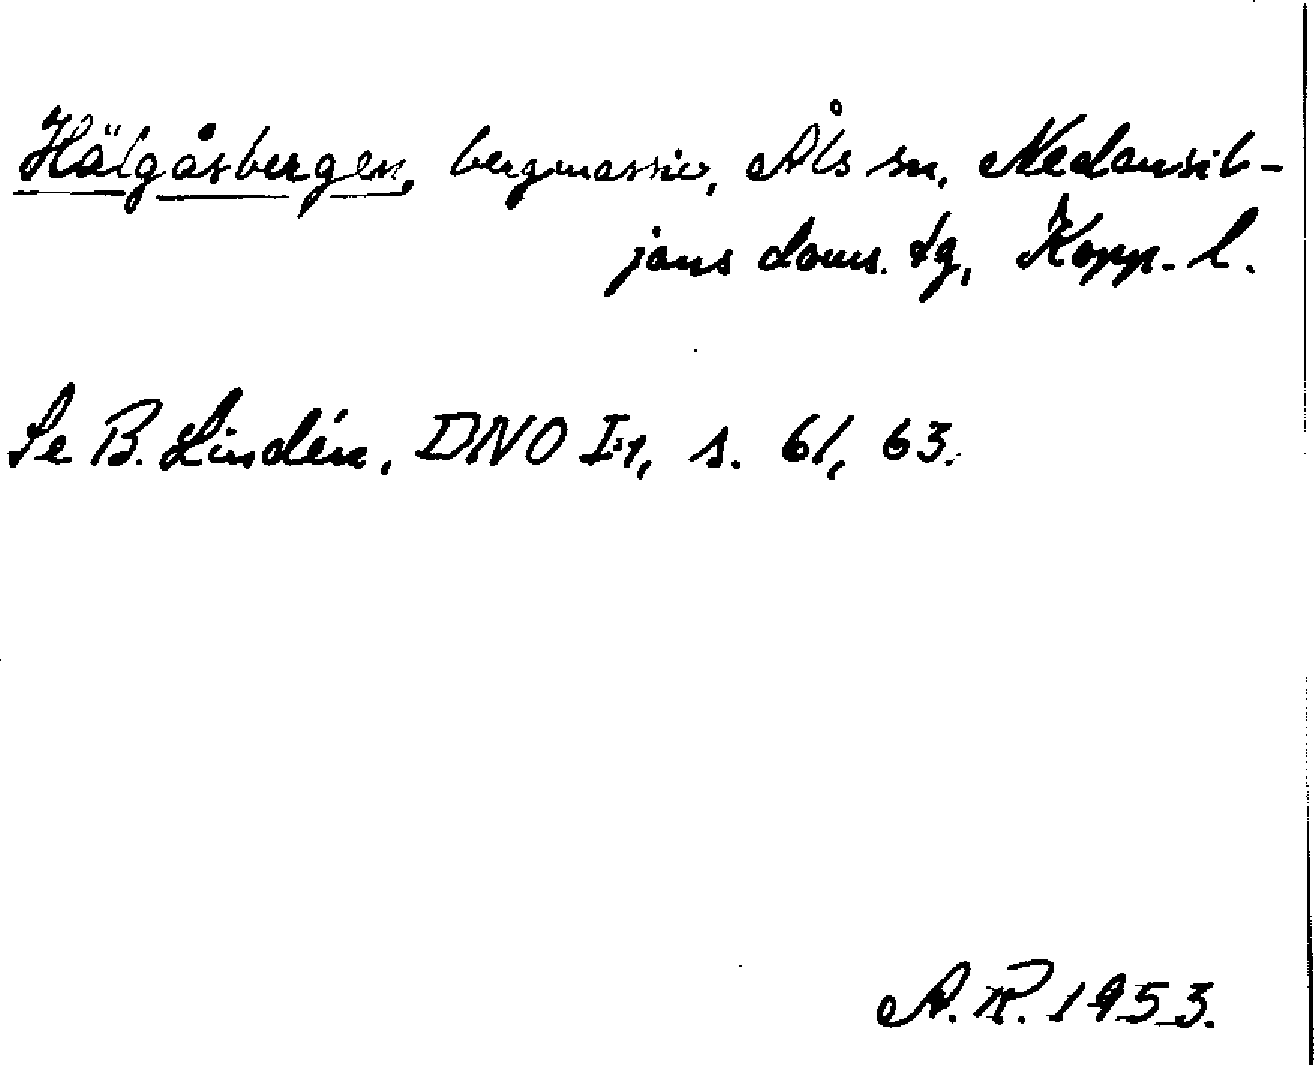 Hälgåsbergen, bergmassiv, Åls sn, Nedansil-
jans doms. tg, Kopp. l.
Se B. Lindén, DNO I:1, s. 61, 63.
A. R. 1953.